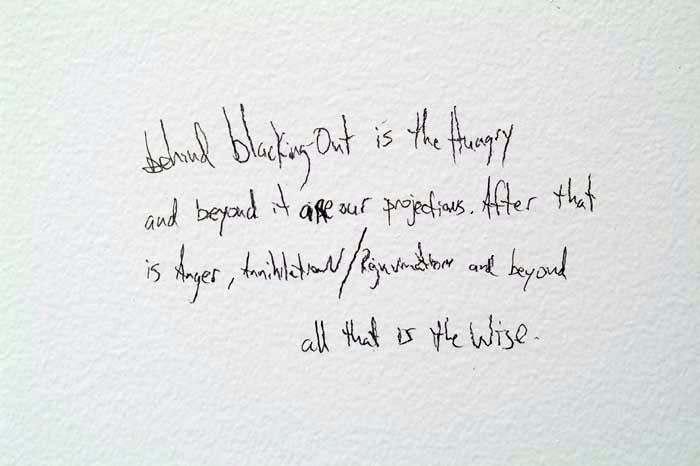 behind blacking-Out is the Hungry
and beyond it are our projections. After that
is Anger, Annihilation/Rejuvination and beyond
all that is the Wise.